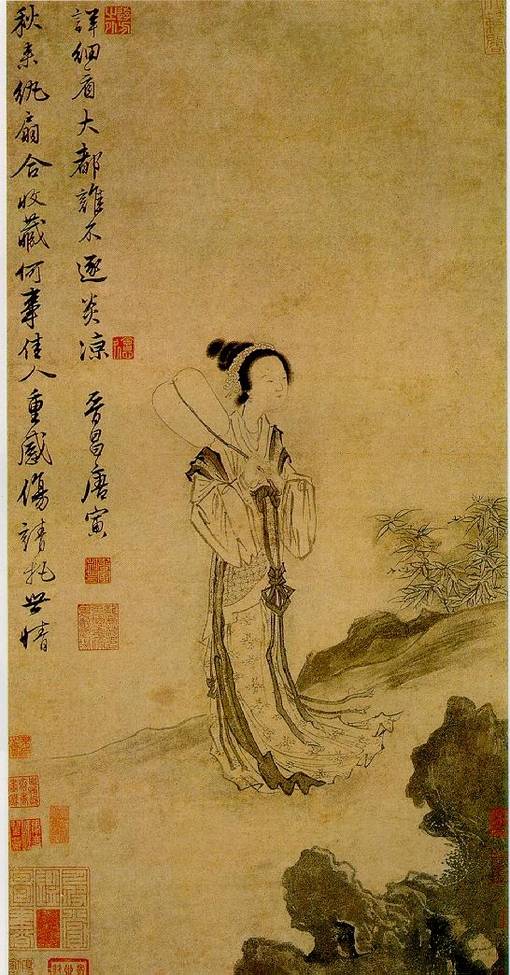 秋來紈扇合收藏何事佳人重感傷請托世情
詳細看大都誰不逐炎凉
晉昌唐寅